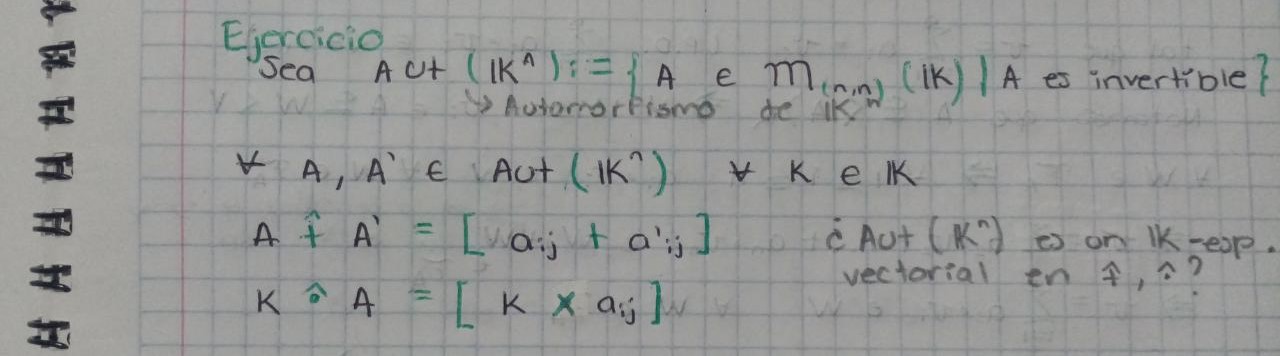 Ejercicio
Sea Aut (𝕂ⁿ) := { A ∈ M₍ₙ,ₙ₎ (𝕂) | A es invertible}
↳ Automorfismo de 𝕂ⁿ
∀ A, A' ∈ Aut (𝕂ⁿ) ∀ K ∈ 𝕂
A +̂ A' = [ aij + a'ij ] ¿ Aut (𝕂ⁿ) es un 𝕂-esp.
vectorial en +̂, ∘̂?
K ∘̂ A = [ K × aij ]